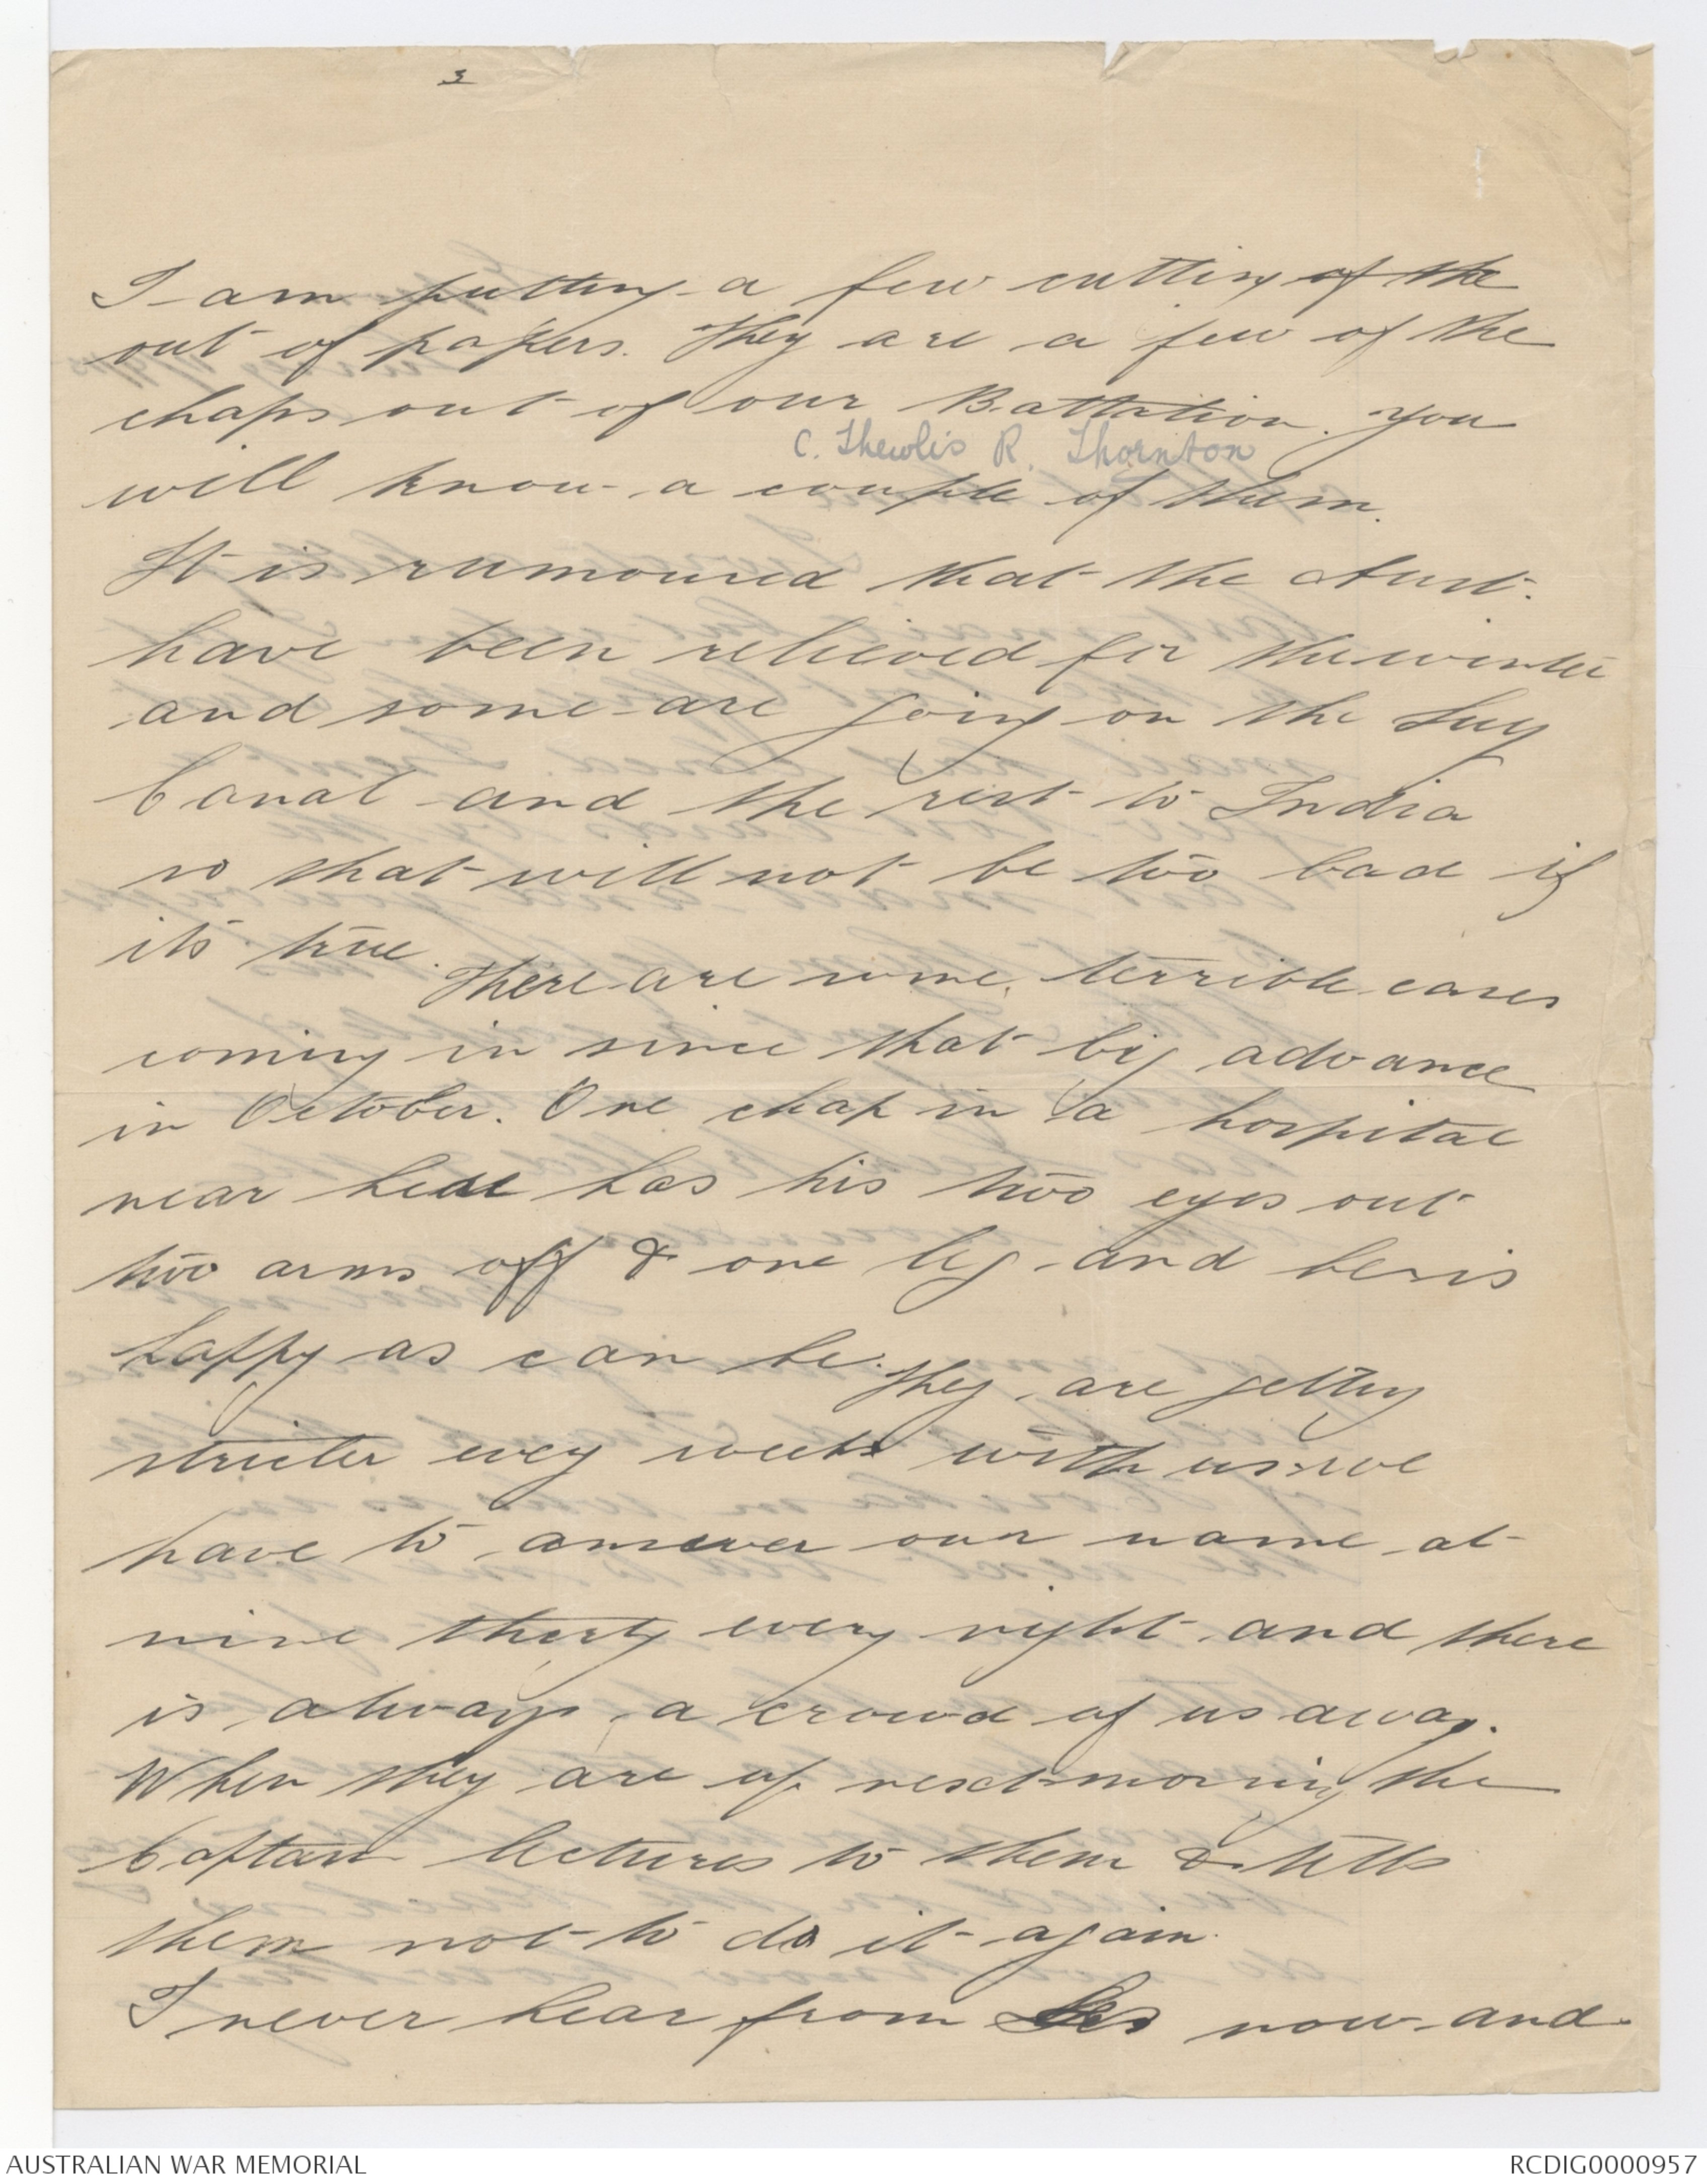 3
I am putting a few cutting of the
out of papers. They are a few of the
chaps out of our Battation. you
C. Thewlis R. Thornton
will know a couple of them.
It is rumoured that the Aust.
have been relieved for the winter
and some are going on the Suy
Canal and the rest to India
so that will not be too bad if
its true. There are some terrible cases
coming in since that big advance
in October. One chap in a hospital
near here has his two eyes out
two arms off & one leg and he is
happy as can be. They are getting
stricter every week with us. we
have to answer our name at
nine therty every night and there
is always a crowd of us away.
When they are up next morning the
Captain lectures to them & tells
them not to do it again.
I never hear from Les now and
AUSTRALIAN WAR MEMORIAL
RCDIG0000957